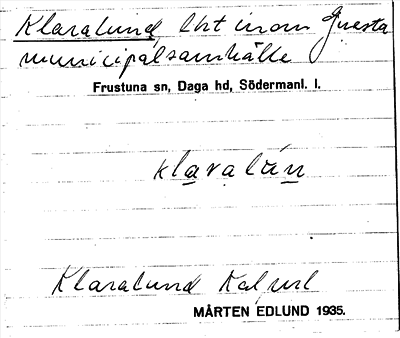 Klaralund lht inom Gnesta
municipalsamhälle
Frustuna sn, Daga hd, Södermanl. l.
klaralún
Klaralund
MÅRTEN EDLUND 1935.